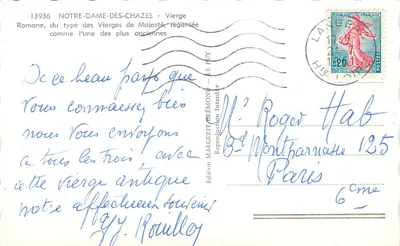 13936 NOTRE-DAME-DES-CHAZES - Vierge
Romane, du type des Vierges de Majesté, regardée
comme l'une des plus anciennes
De ce beau pays que
vous connaissez bien
nous vous envoyons
à tous les trois, avec
cette vierge antique
notre affectueux souvenir
Edition MARGERIT-BRÉMOND - LE PUY
Reproduction Interdite
LANGEAC
HTE LOIRE
0,20
POSTES
Mr Roger Hab
Bd Montparnasse 125
Paris
6ème